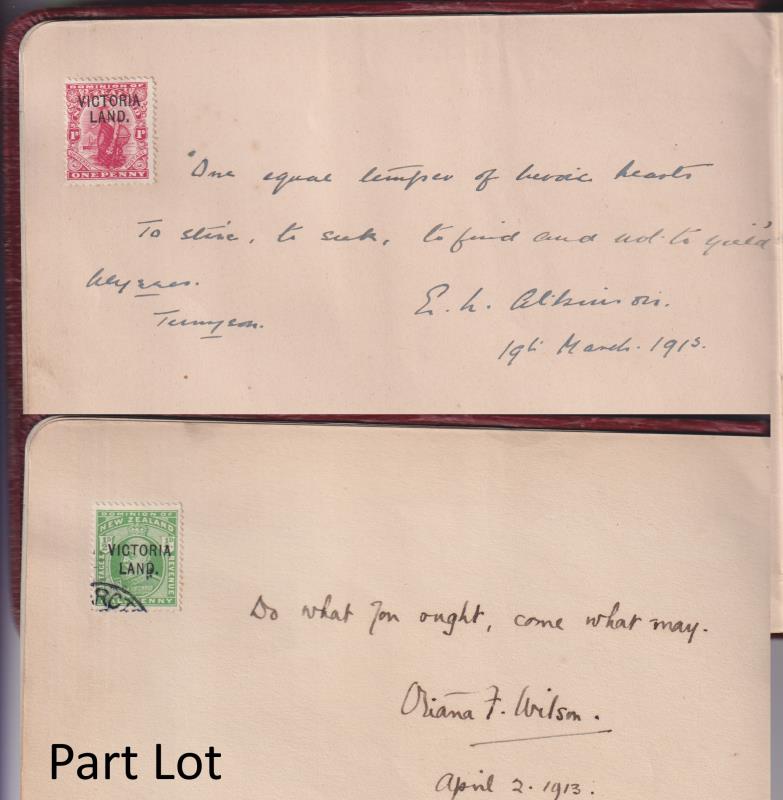 DOMINION OF
VICTORIA
LAND.
1D 1D
ONE PENNY
"One equal temper of heroic hearts
To strive, to seek, to find and not to yield"
Ulysses.
Tennyson.
E. L. Atkinson.
19th March. 1913.
DOMINION OF
NEW ZEALAND
VICTORIA
LAND.
REVENUE
PENNY
RCT
Do what you ought, come what may.
Oriana F. Wilson.
April 2. 1913.
Part Lot